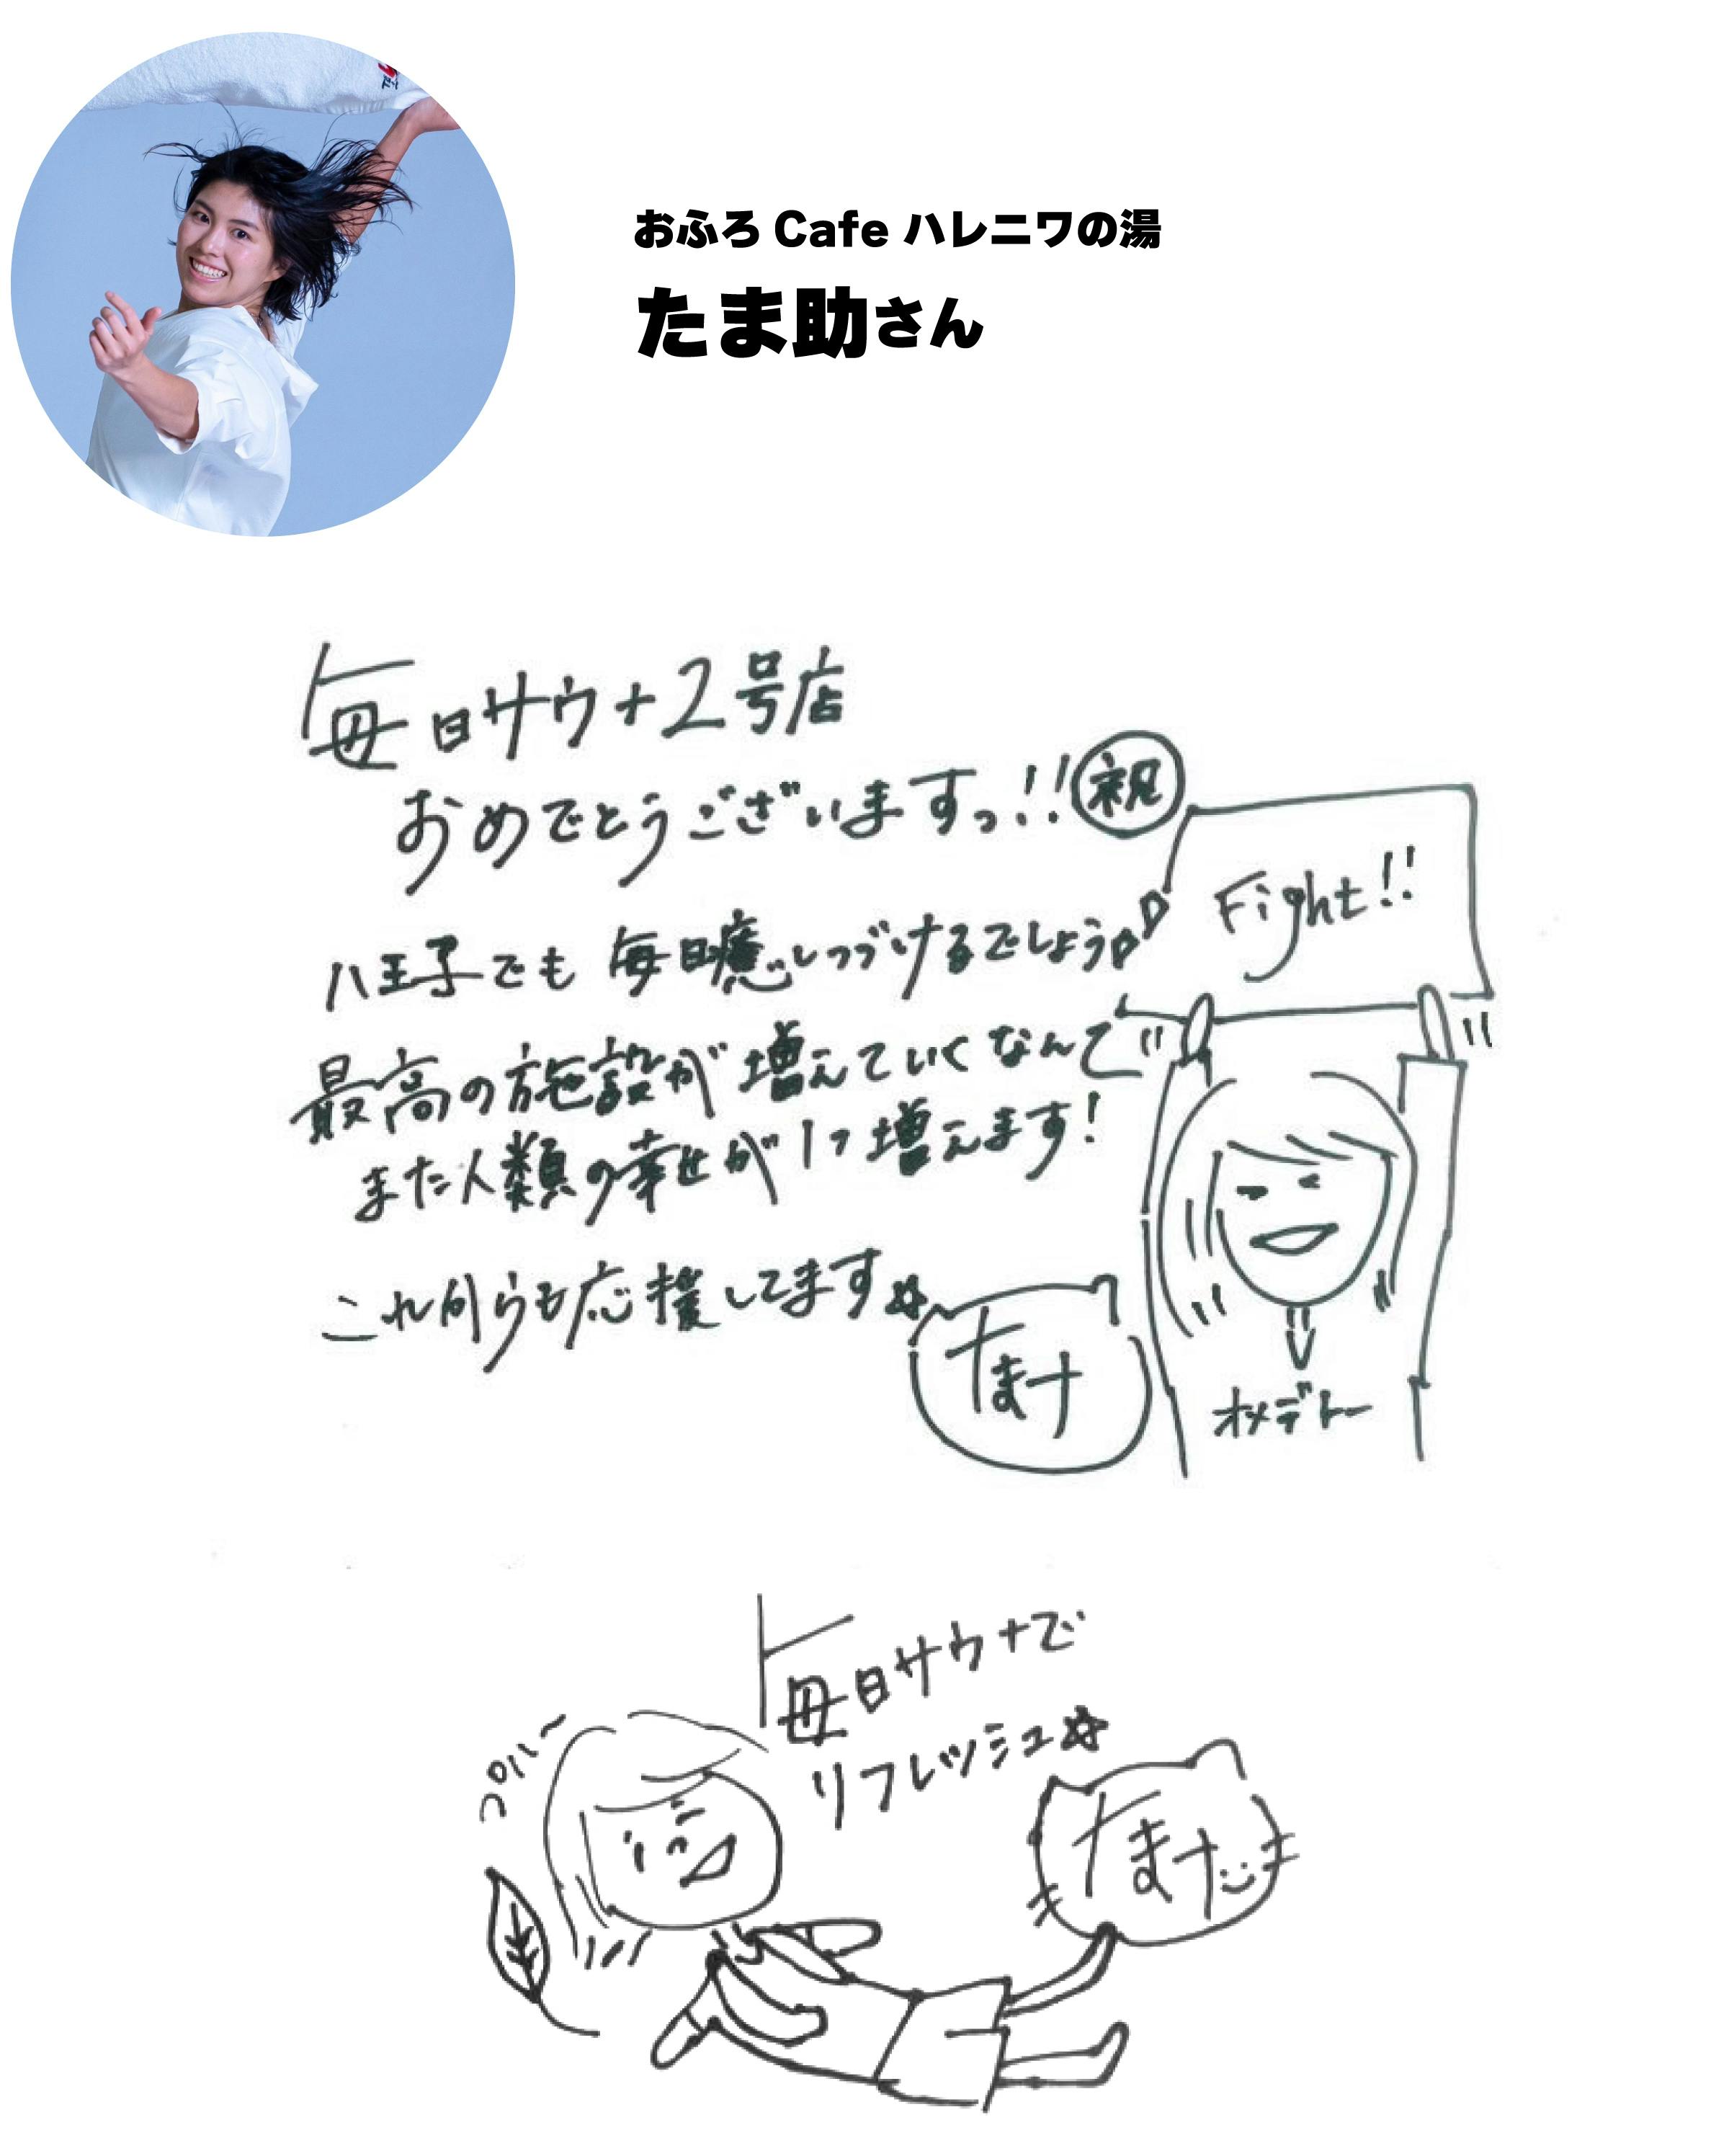 おふろCafe ハレニワの湯
たま助さん
毎日サウナ2号店
おめでとうございますっ!!祝
八王子でも毎日癒しつづけるでしょう♪♪
最高の施設が増えていくなんて
また人類の幸せが1つ増えます!
これからも応援してます☆
たまナ
Fight!!
オメデトー
毎日サウナで
リフレッシュ☆